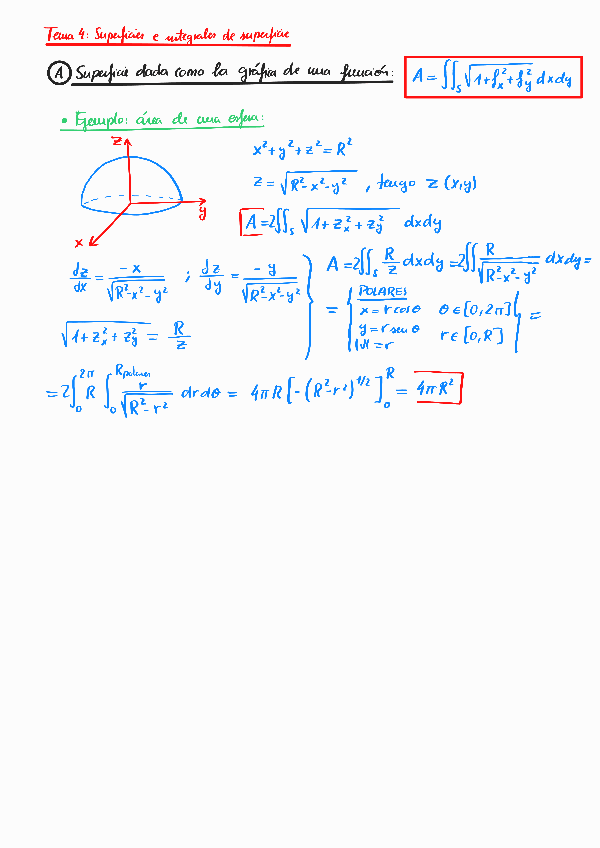 Tema 4: Superficies e integrales de superficie
Ⓐ Superficie dada como la gráfica de una función: A = ∬_S √(1+f_x²+f_y²) dxdy
• Ejemplo: área de una esfera:
z
y
x
x²+y²+z²=R²
z = √(R²-x²-y²) , tengo z(x,y)
A=2∬_S √(1+z_x²+z_y²) dxdy
dz/dx = -x/√(R²-x²-y²) ; dz/dy = -y/√(R²-x²-y²)
√(1+z_x²+z_y²) = R/z
A=2∬_S R/z dxdy =2∬ R/√(R²-x²-y²) dxdy=
= { POLARES
x = r cosθ θ∈[0,2π]
y = r senθ r∈[0,R]
|J| = r } =
= 2∫_0^{2π} R ∫_0^{R polares} r/√(R²-r²) drdθ = 4πR [-(R²-r²)^{1/2}]_0^R = 4πR²